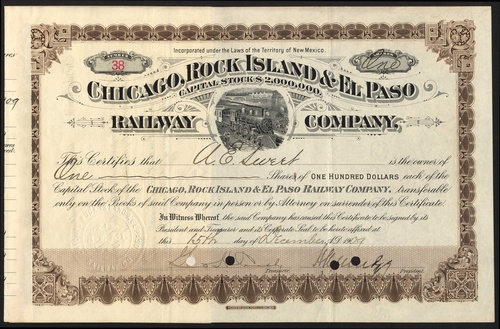 Incorporated under the Laws of the Territory of New Mexico.
NUMBER
38
One
CHICAGO, ROCK ISLAND & EL PASO
CAPITAL STOCK $2,000,000,
RAILWAY COMPANY,
This Certifies that A. E. Sweet is the owner of
One Shares of ONE HUNDRED DOLLARS each of the
Capital Stock of the CHICAGO, ROCK ISLAND & EL PASO RAILWAY COMPANY, transferable
only on the Books of said Company in person or by Attorney on surrender of this Certificate.
In Witness Whereof the said Company has caused this Certificate to be signed by its
President and Treasurer and its Corporate Seal to be hereto affixed at
this 15th day of December 1909
Treasurer President